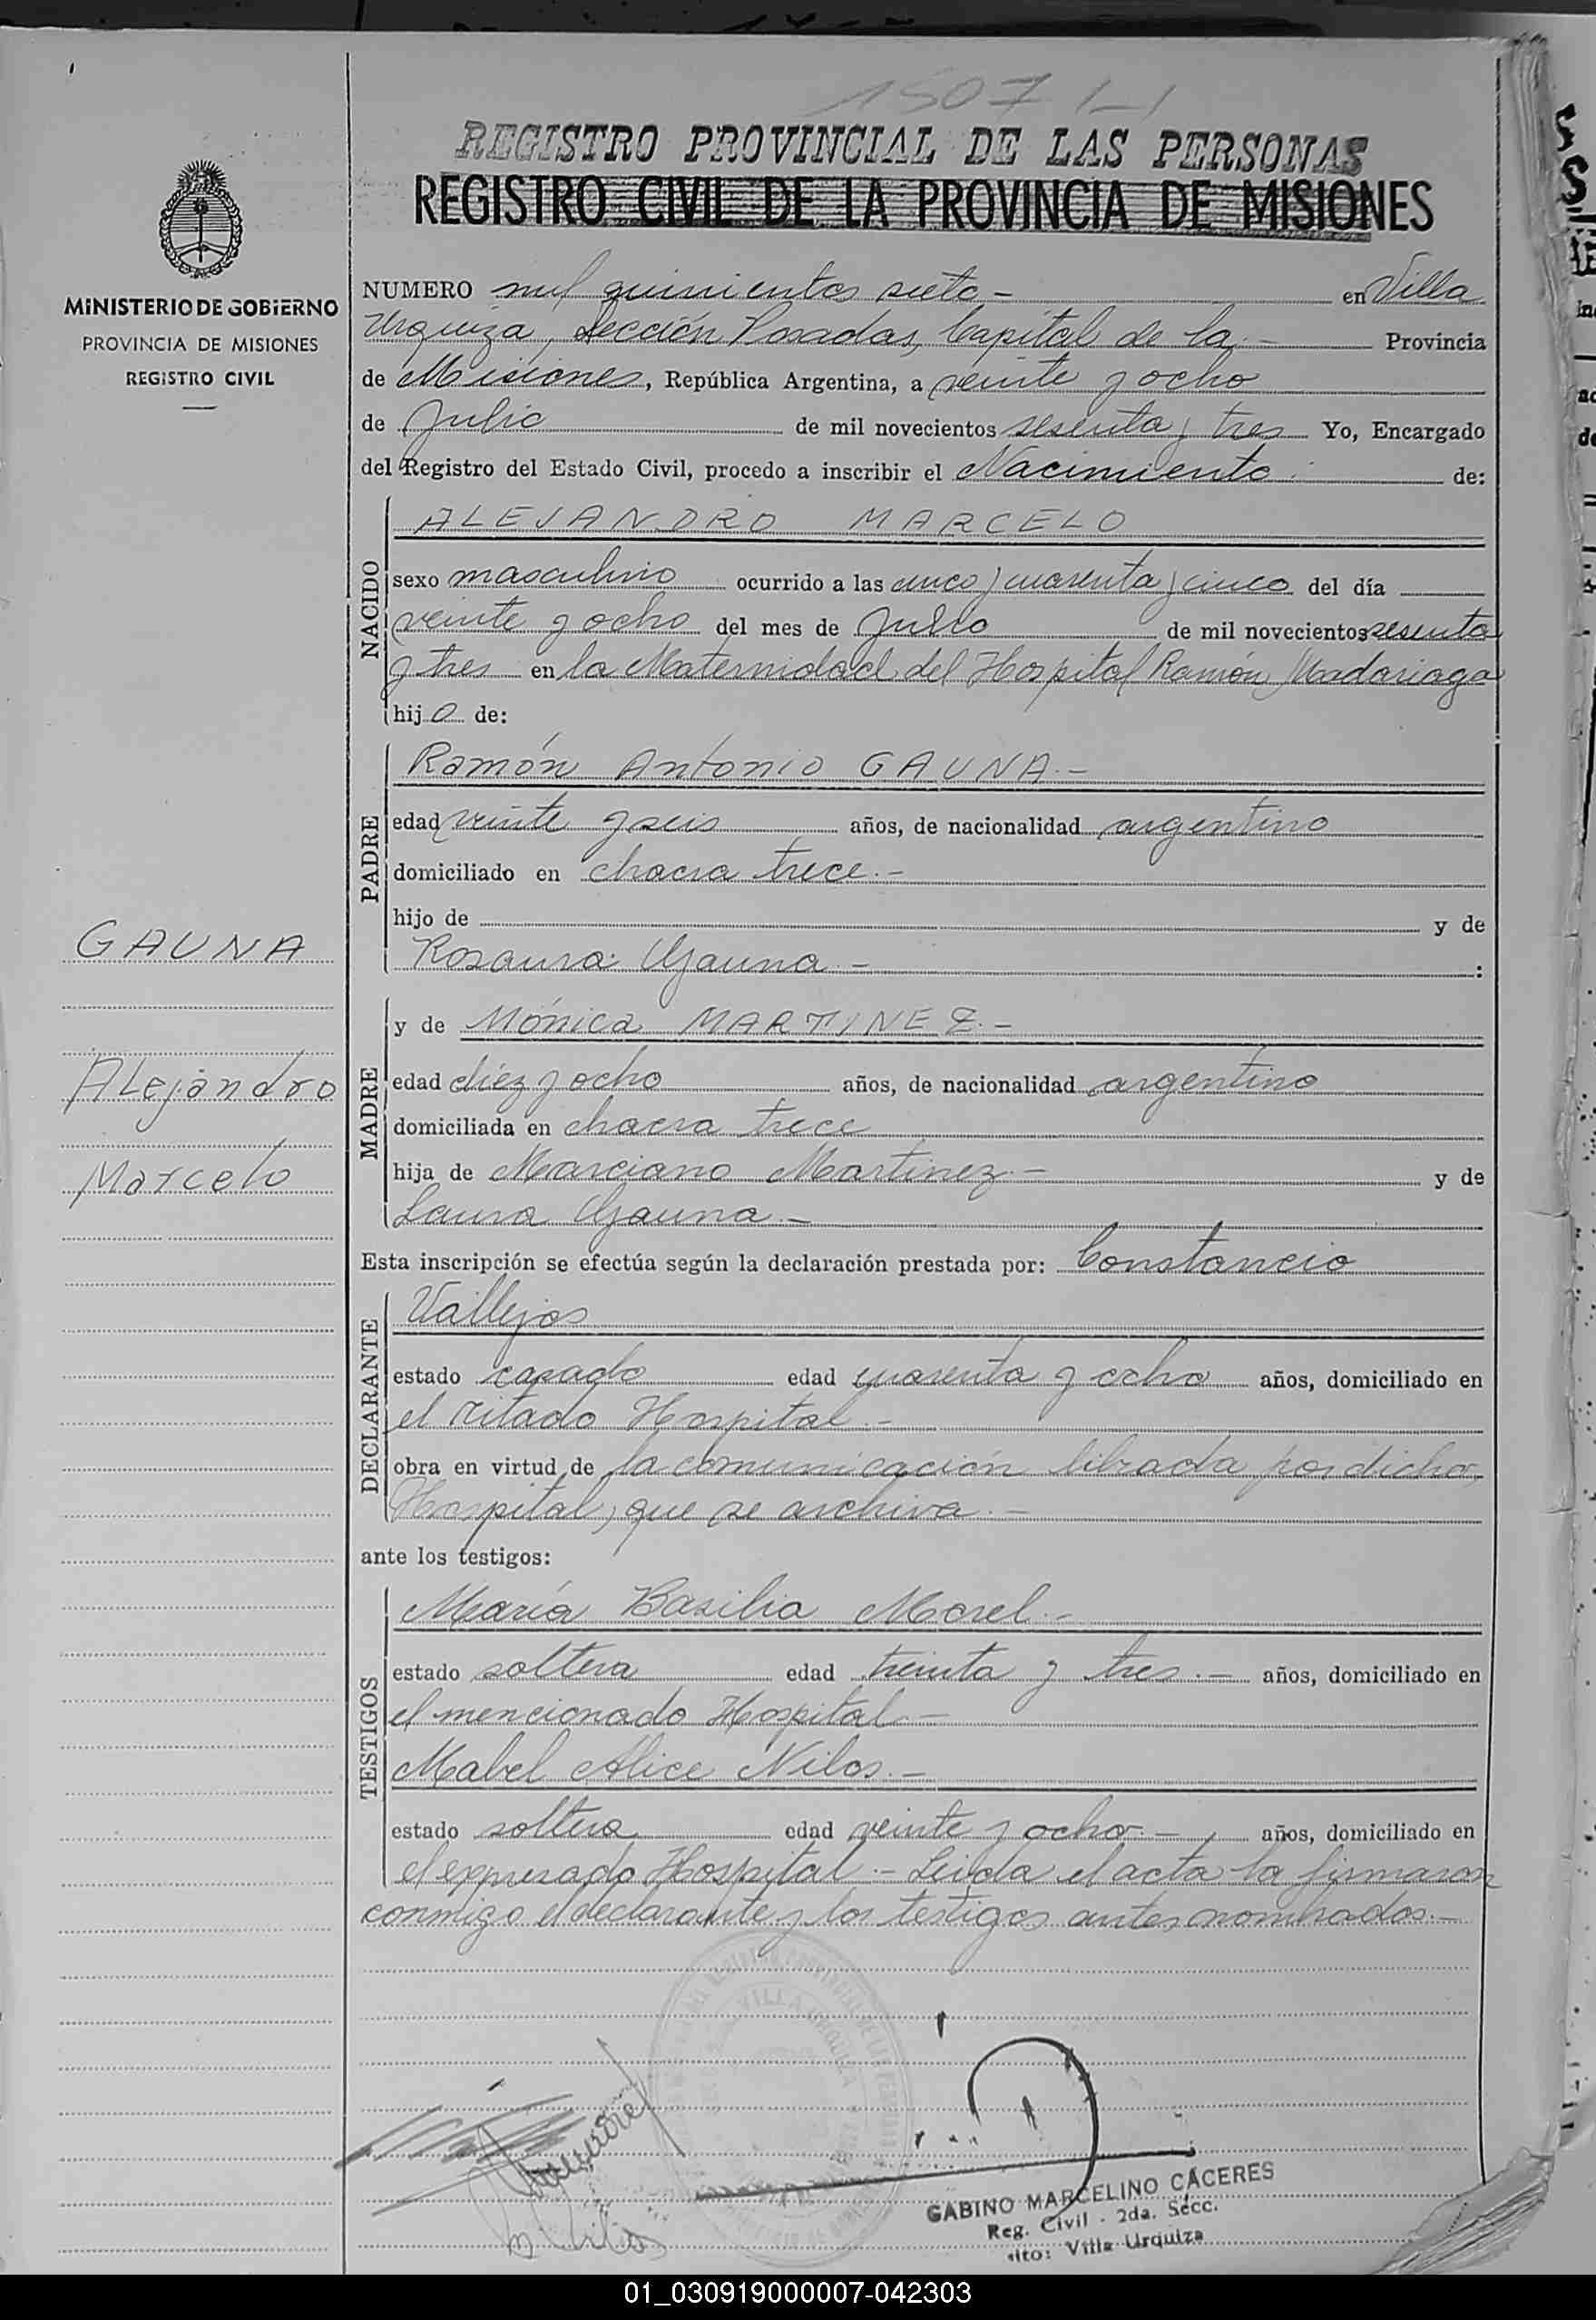 1507 1-1
REGISTRO PROVINCIAL DE LAS PERSONAS
REGISTRO CIVIL DE LA PROVINCIA DE MISIONES
MINISTERIO DE GOBIERNO
PROVINCIA DE MISIONES
REGISTRO CIVIL
NUMERO mil quinientos siete - en Villa
Urquiza, Sección Posadas, Capital de la - Provincia
de Misiones, República Argentina, a veinte y ocho
de Julio de mil novecientos sesenta y tres Yo, Encargado
del Registro del Estado Civil, procedo a inscribir el Nacimiento de:
NACIDO
ALEJANDRO MARCELO
sexo masculino ocurrido a las cinco y cuarenta y cinco del día
veinte y ocho del mes de Julio de mil novecientos sesenta
y tres en la Maternidad del Hospital Ramón Madariaga
hijo de:
PADRE
Ramón Antonio GAUNA.-
edad veinte y seis años, de nacionalidad argentino
domiciliado en chacra trece.-
hijo de y de
Rosaura Gauna -
GAUNA
Alejandro
Marcelo
MADRE
y de Mónica MARTINEZ.-
edad diez y ocho años, de nacionalidad argentina
domiciliada en chacra trece
hija de Marciano Martinez.- y de
Laura Gauna.-
Esta inscripción se efectúa según la declaración prestada por: Constancio
DECLARANTE
Vallejos
estado casado edad cuarenta y ocho años, domiciliado en
el citado Hospital.-
obra en virtud de la comunicación librada por dicho
Hospital, que se archiva.-
ante los testigos:
TESTIGOS
María Basilia Morel.-
estado soltera edad treinta y tres.- años, domiciliado en
el mencionado Hospital.-
Mabel Alice Nilos.-
estado soltera edad veinte y ocho.- años, domiciliado en
el expresado Hospital.- Leida el acta la firmaron
conmigo el declarante y los testigos antes nombrados.-
VILLA URQUIZA
GABINO MARCELINO CACERES
Reg. Civil - 2da. Secc.
Villa Urquiza
01_030919000007-042303